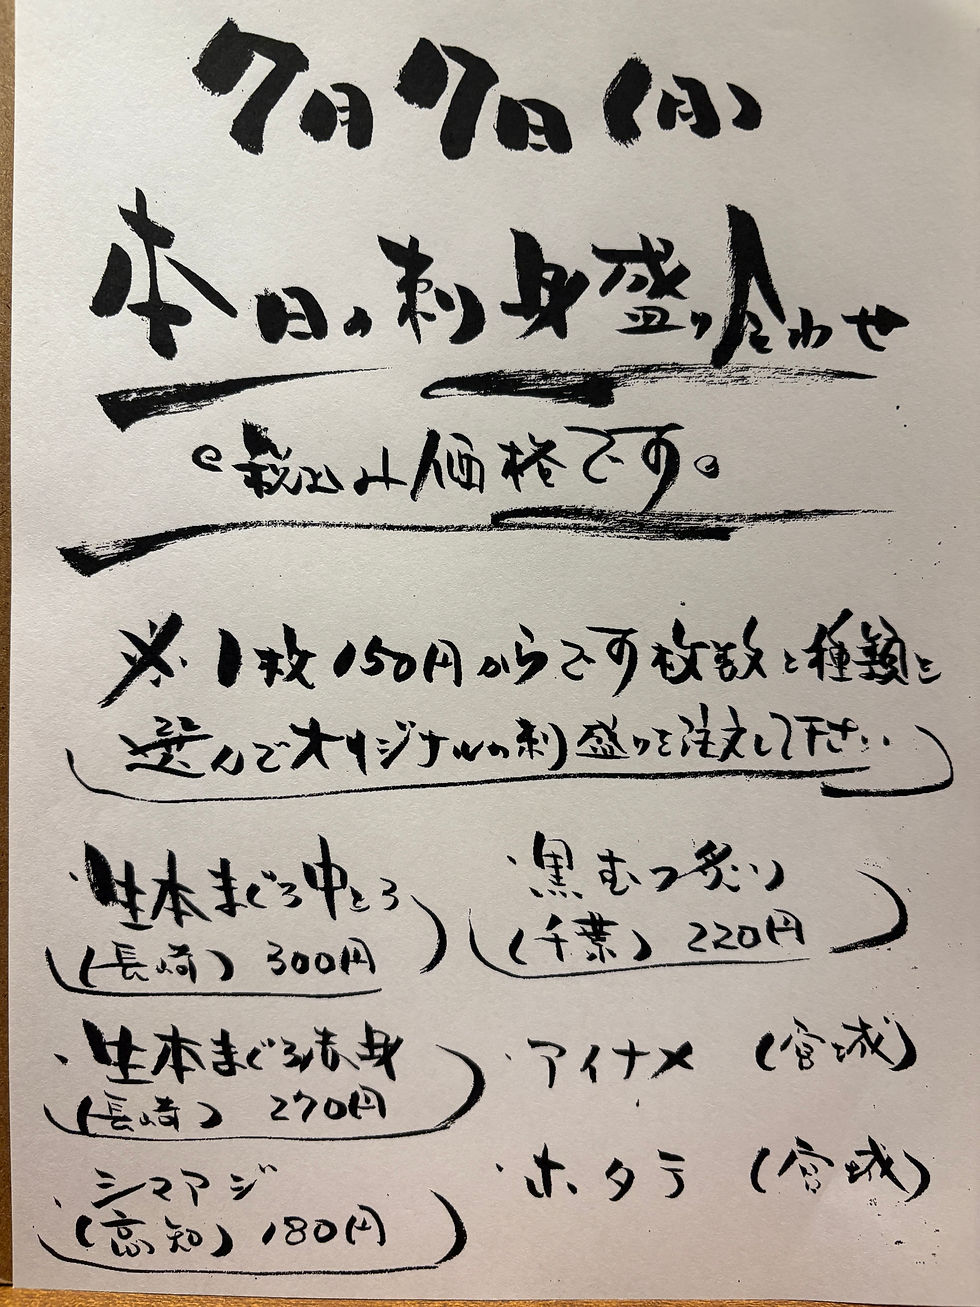 7月7日(月)
本日の刺身盛り合わせ
。税込み価格です。
※1枚150円からです枚数と種類を
選んでオリジナルの刺盛りを注文して下さい
・生本まぐろ中とろ
(長崎) 300円
・生本まぐろ赤身
(長崎) 270円
・シマアジ
(高知) 180円
・黒むつ炙り
(千葉) 220円
・アイナメ (宮城)
・ホタテ (宮城)